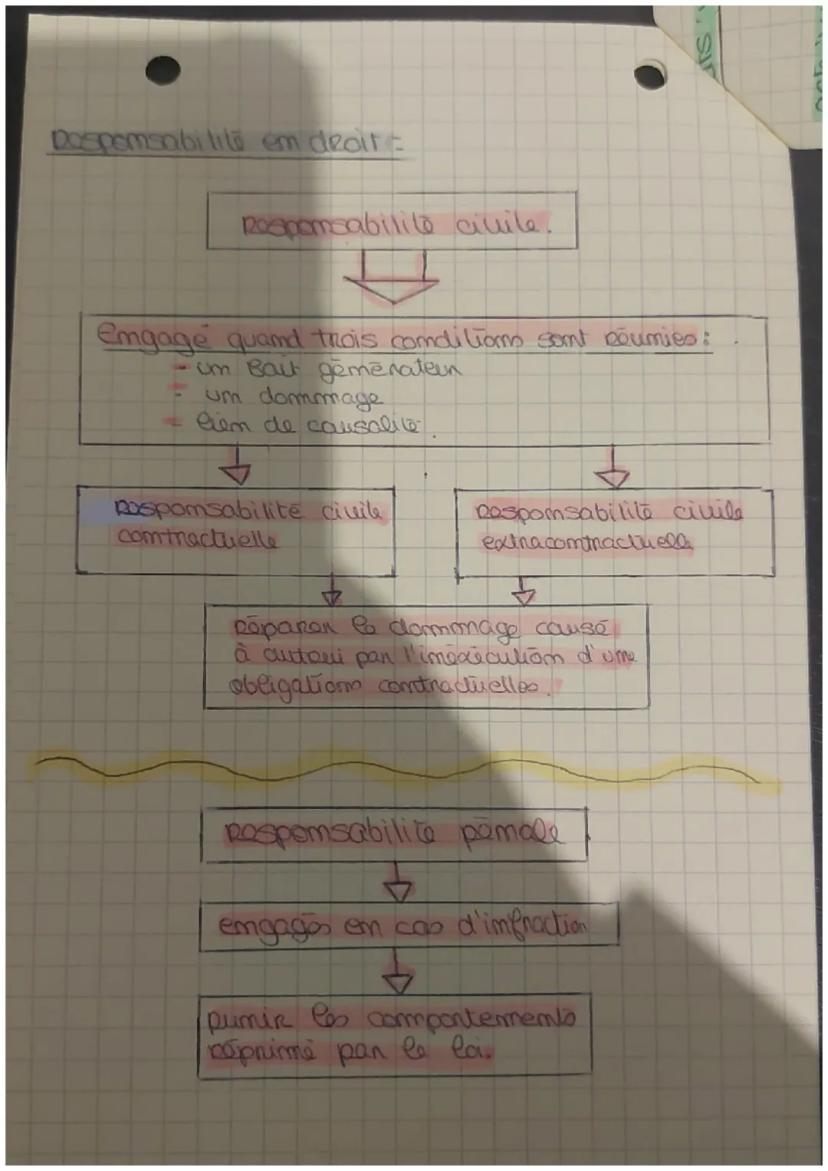 Responsabilité en droit :
Responsabilité civile.
engagé quand trois conditions sont réunies :
- un fait générateur
- un dommage
- lien de causalité.
Responsabilité civile
contractuelle
Responsabilité civile
extracontractuelle
Réparer le dommage causé
à autrui par l'inéxécution d'une
obligations contractuelles.
Responsabilité pénale
engagés en cas d'infraction
punir les comportements
réprimé par la loi.